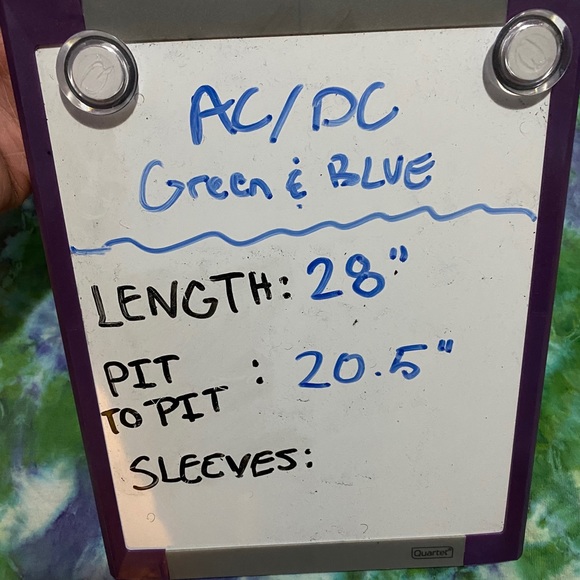 AC/DC
Green & BLUE
LENGTH: 28"
PIT : 20.5"
TO PIT
SLEEVES:
Quartet